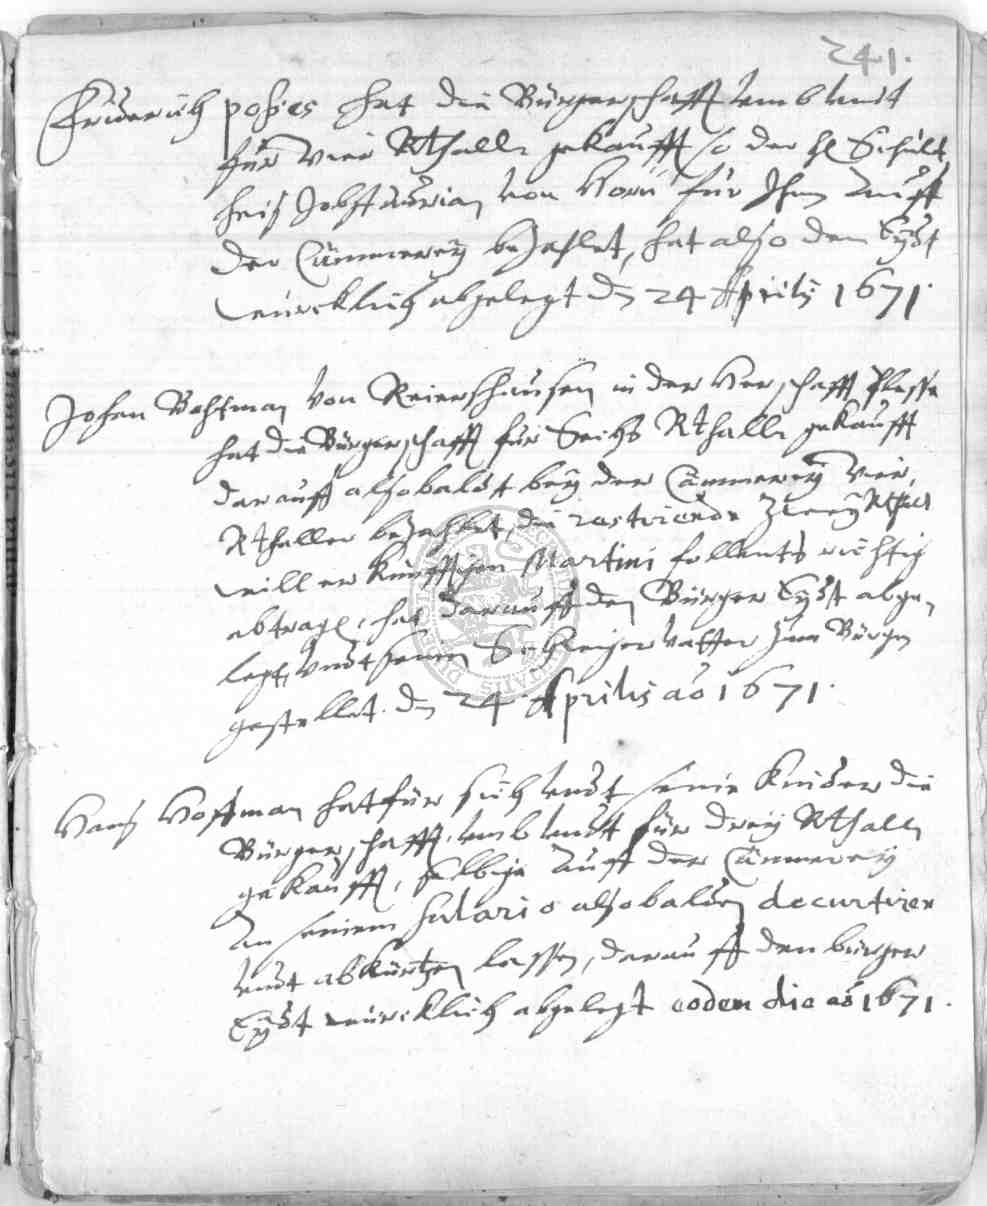 241.
Friderich pohses hat die Bürgerschafft umb undt
für vier Rthall. gekaufft so der H. Schült
heiß Jobst von Horn für Ihm auff
der Cämmerey bezahlet, hat also den Eydt
würcklich abgelegt d. 24 Aprilis 1671.
Johan Bohtman von Reiershausen in der Herschafft Plesse
hat die Bürgerschafft für Sechs Rthall. gekaufft
darauff alsobaldt bey der Cämmerey vier
Rthaller bezahlet, die restirende Zwey Rthal.
will er künfftigen Martini follents richtig
abtragen, hat darauff den Bürger Eydt abge
legt, undt seinen Schwigervatter zum Bürgen
gestellet. d. 24 Aprilis ao 1671.
Hans Hoffman hat für sich undt seine Kinder die
Bürgerschafft, umb undt für drey Rthall.
gekaufft, selbige auff der Cämmerey
an seinem Salario alsobalden decurtiren
undt abkürtzen lassen, darauff den bürger
Eydt würcklich abgelegt eodem die ao 1671.